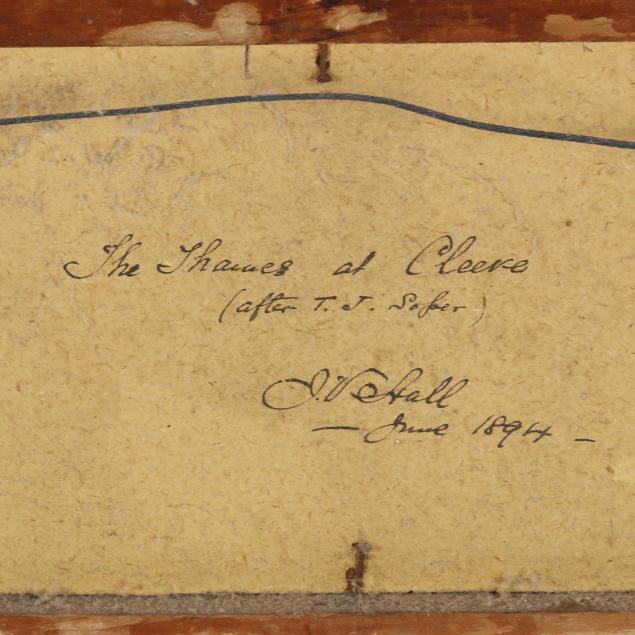 The Thames at Cleeve
(after T. J. Soper)
June 1894